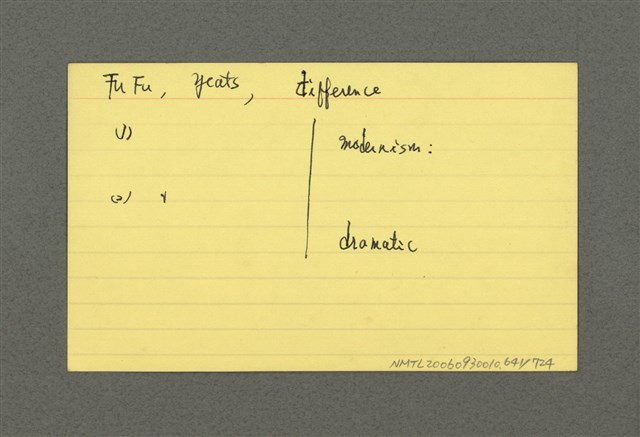 Fu Fu, Yeats, difference
(1)
modernism:
(2)
dramatic
NMTL20060930010.641/724